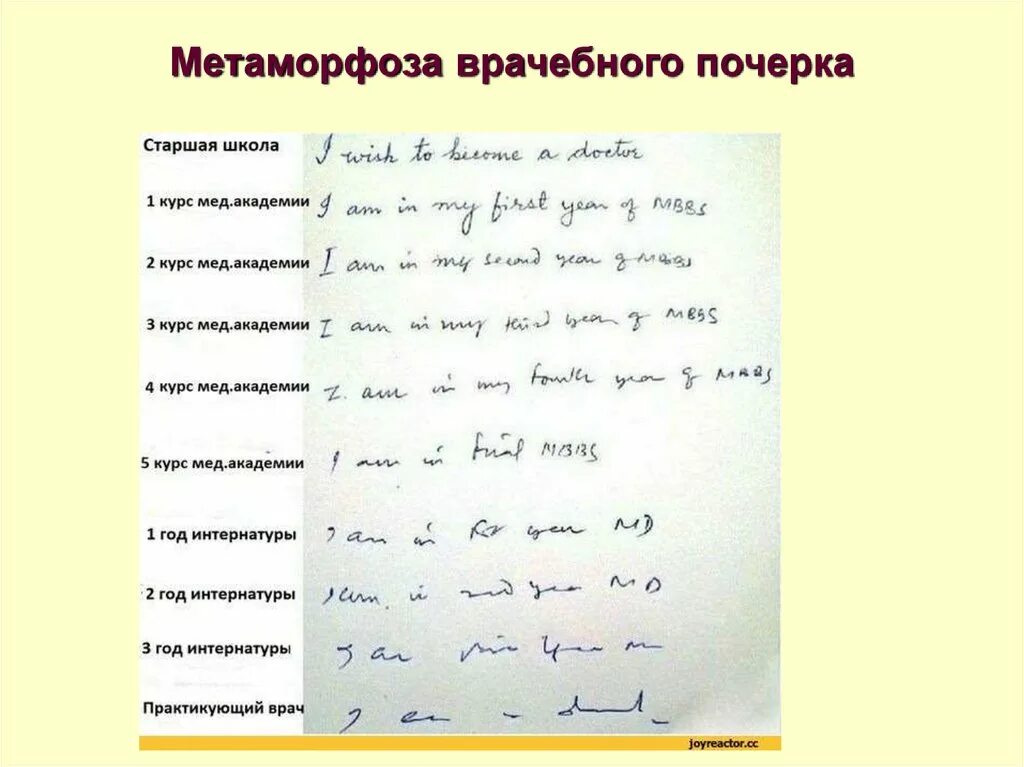 Метаморфоза врачебного почерка
Старшая школа I wish to become a doctor
1 курс мед.академии I am in my first year of MBBS
2 курс мед.академии I am in my second year of MBBS
3 курс мед.академии I am in my third year of MBBS
4 курс мед.академии I am in my fourth year of MBBS
5 курс мед.академии I am in final MBBS
1 год интернатуры I am in year MD
2 год интернатуры I am in 2nd year MD
3 год интернатуры I am
Практикующий врач
joyreactor.cc